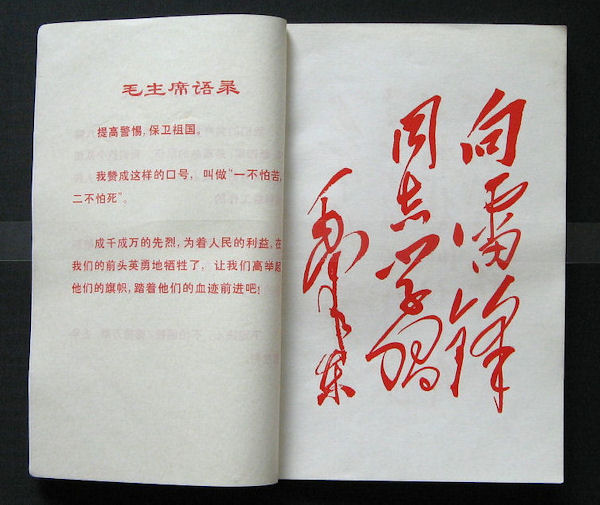 毛主席语录
提高警惕,保卫祖国。
我赞成这样的口号，叫做“一不怕苦，
二不怕死”。
成千成万的先烈，为着人民的利益，在
我们的前头英勇地牺牲了，让我们高举起
他们的旗帜，踏着他们的血迹前进吧！
向雷锋
同志学习
毛泽东